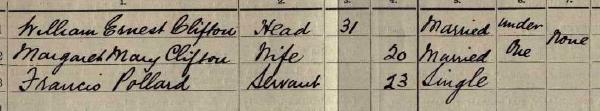 1 William Ernest Clifton Head 31 Married under One None
2 Margaret Mary Clifton Wife 20 Married
3 Francis Pollard Servant 23 Single